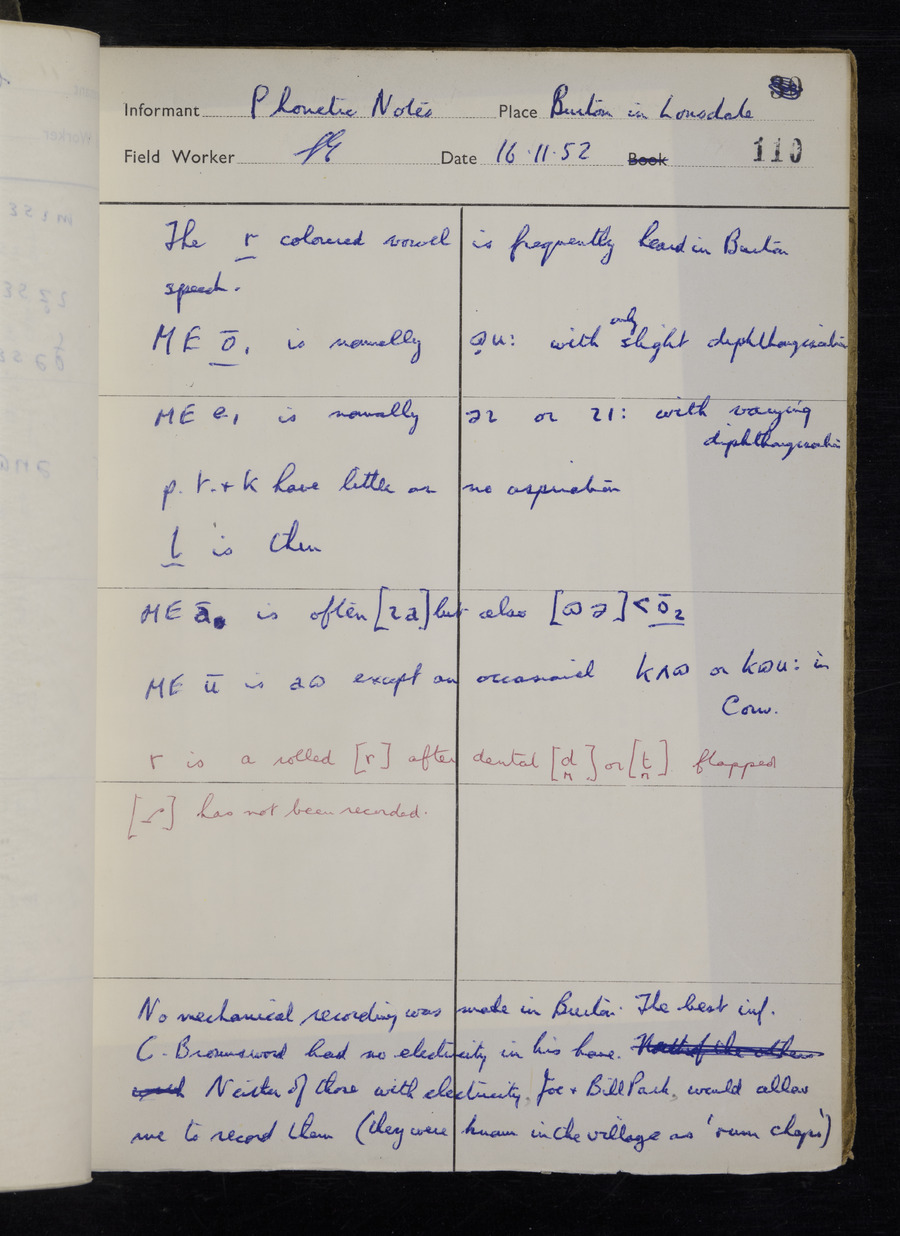 Informant Phonetic Notes Place Burton in Lonsdale
Field Worker Date 16.11.52 Book 110
The r coloured vowel is frequently heard in Burton
speech.
ME ō₁ is normally əu: with only slight diphthongisation
ME e₁ is normally əɪ or ɪi: with varying
diphthongisation
p. t. + k have little or no aspiration
l is clear
ME ā is often [ɪa] but also [ɷə] < ō₂
ME ū is aɷ except an occasional kʌɷ or kɷu: in
Cow.
r is a rolled [r] after dental [d̪] or [t̪] flapped
[ɾ] has not been recorded.
No mechanical recording was made in Burton. The best inf.
C. Brownsword had no electricity in his house. Neither of the others
Neither of those with electricity, Joe + Bill Park, would allow
me to record them (they were known in the village as 'rum chaps')